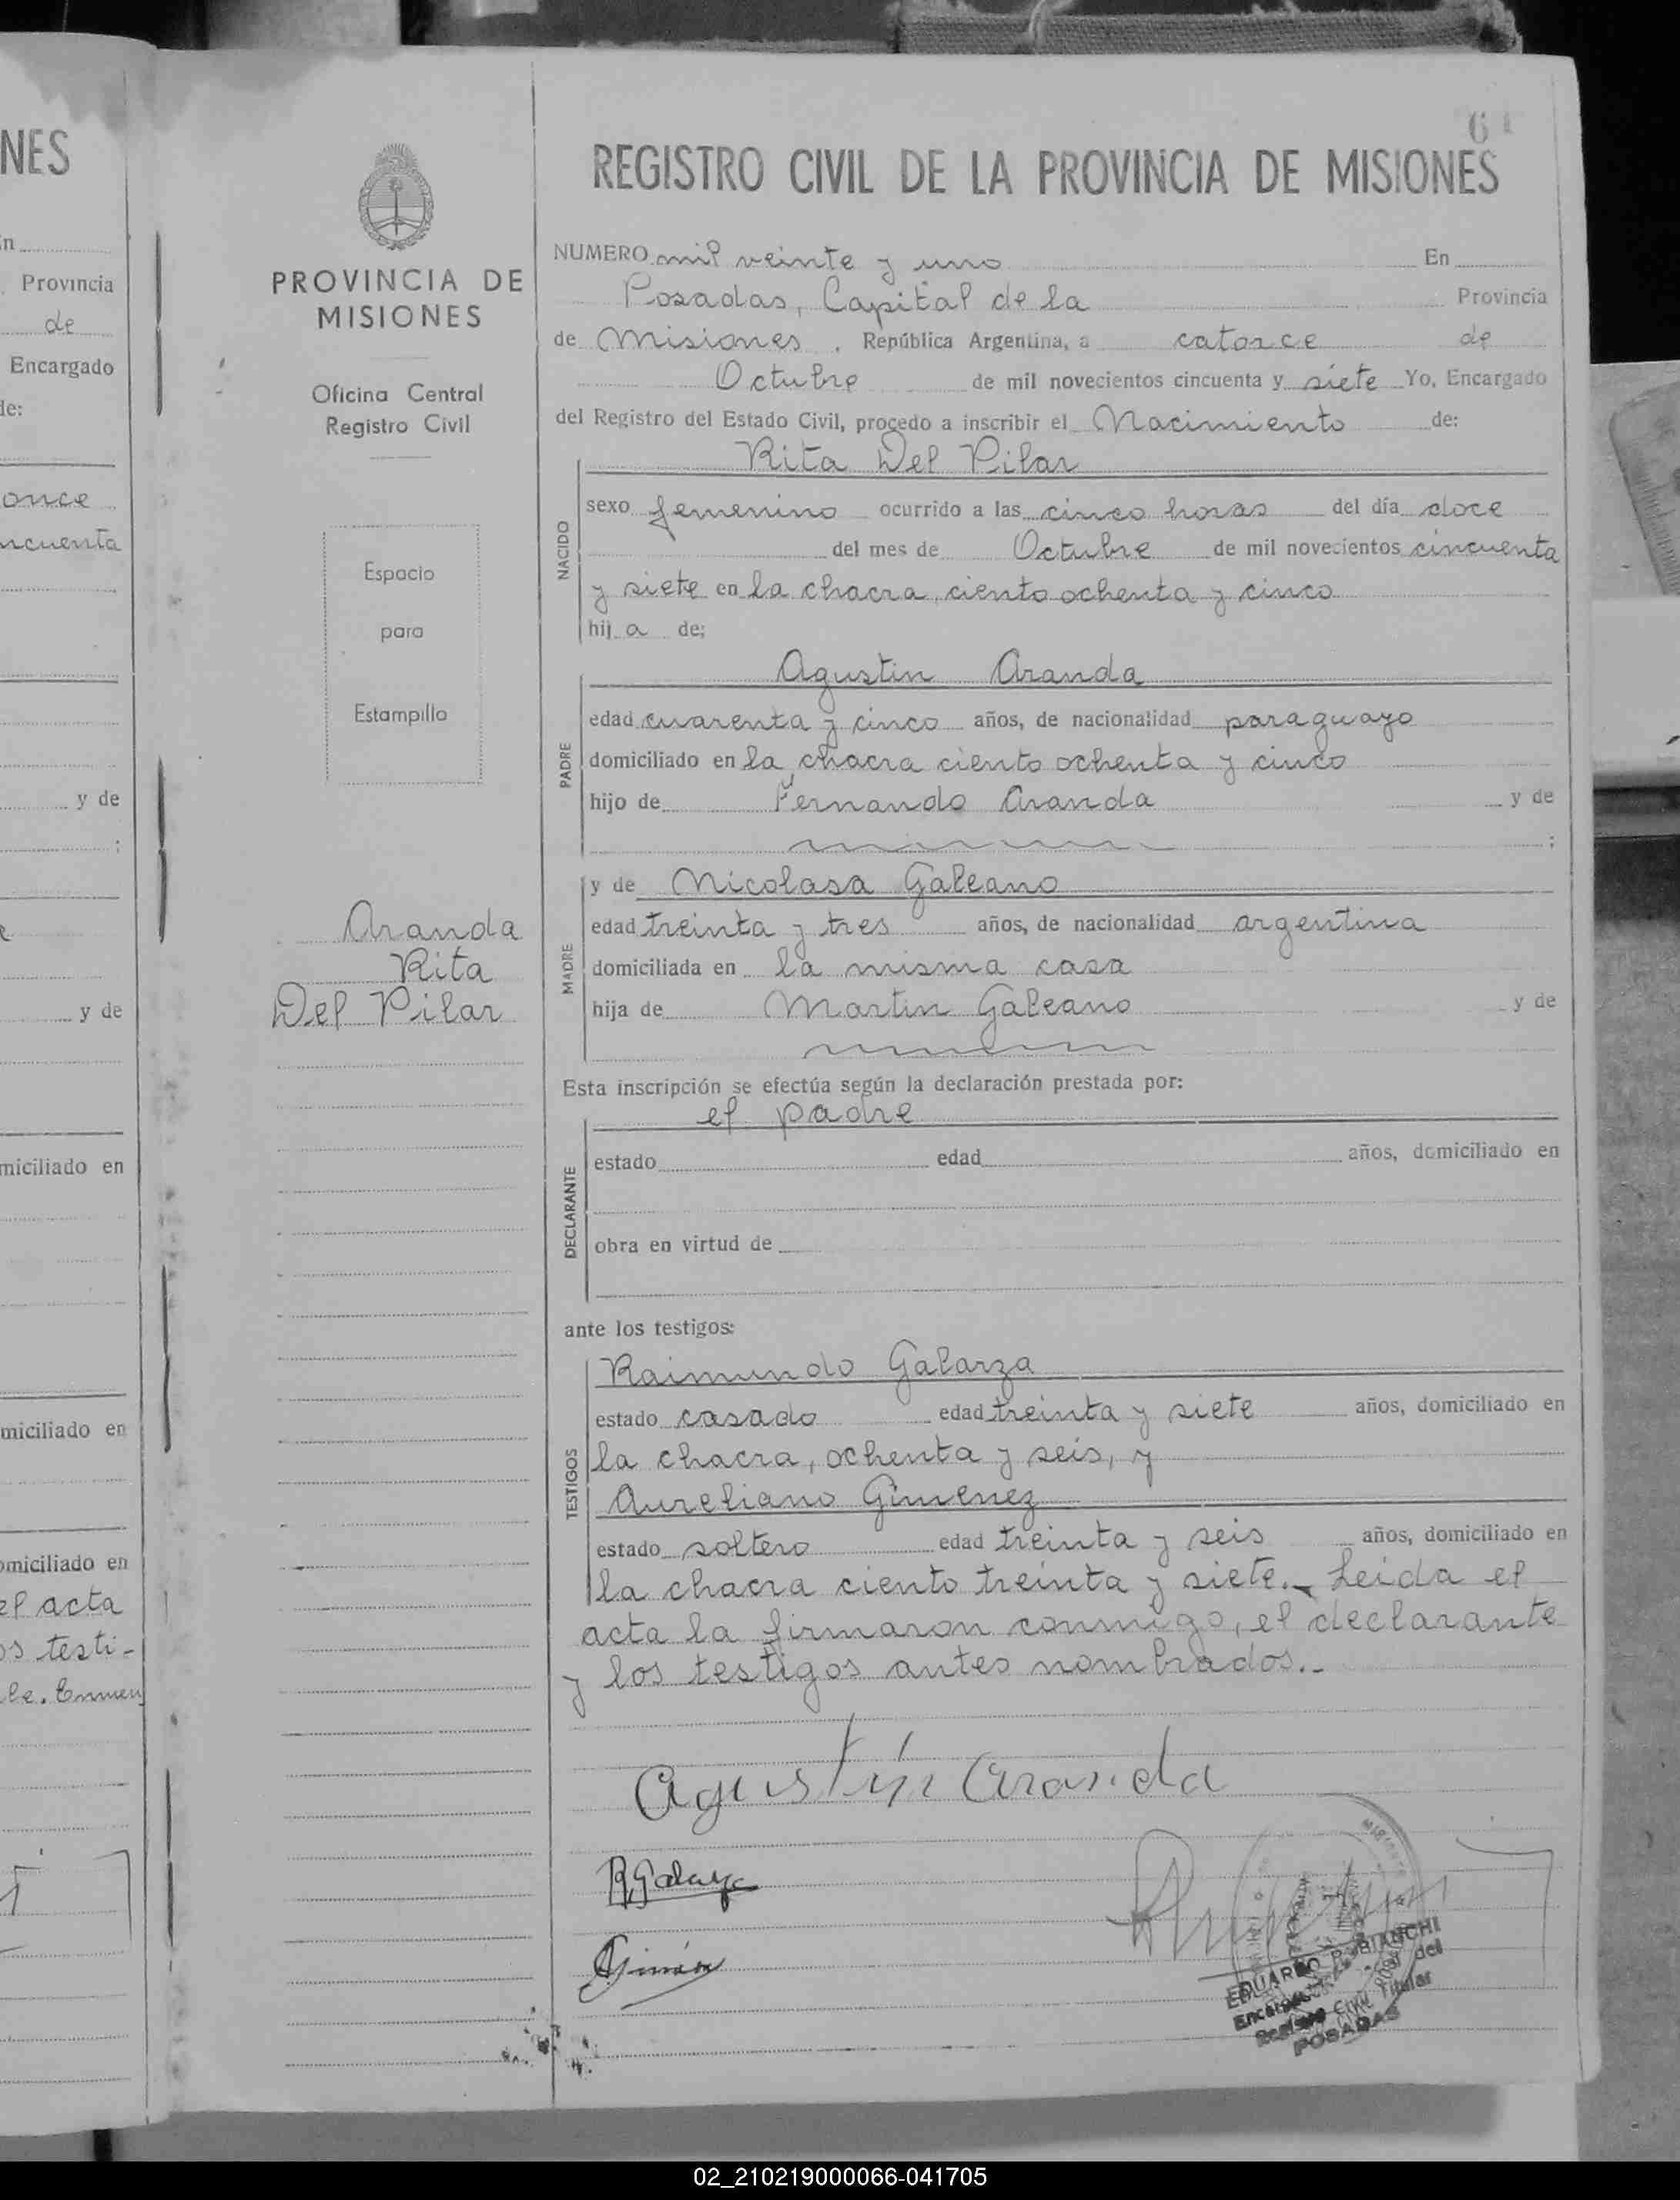 NES
n
Provincia
de
Encargado
de:
once
ncuenta
y de
;
y de
miciliado en
miciliado en
omiciliado en
el acta
os testi-
le. Enmen
PROVINCIA DE
MISIONES
Oficina Central
Registro Civil
Espacio
para
Estampillo
Aranda
Rita
Del Pilar
REGISTRO CIVIL DE LA PROVINCIA DE MISIONES
NUMERO mil veinte y uno En
Posadas, Capital de la Provincia
de Misiones, República Argentina, a catorce de
Octubre de mil novecientos cincuenta y siete Yo, Encargado
del Registro del Estado Civil, procedo a inscribir el Nacimiento de:
Rita Del Pilar
NACIDO
sexo femenino ocurrido a las cinco horas del día doce
del mes de Octubre de mil novecientos cincuenta
y siete en la chacra, ciento ochenta y cinco
hij a de;
Agustin Aranda
PADRE
edad cuarenta y cinco años, de nacionalidad paraguayo
domiciliado en la chacra ciento ochenta y cinco
hijo de Fernando Aranda y de
;
y de Nicolasa Galeano
MADRE
edad treinta y tres años, de nacionalidad argentina
domiciliada en la misma casa
hija de Martin Galeano y de
Esta inscripción se efectúa según la declaración prestada por:
el padre
DECLARANTE
estado edad años, domiciliado en
obra en virtud de
ante los testigos:
TESTIGOS
Raimundo Galarza
estado casado edad treinta y siete años, domiciliado en
la chacra, ochenta y seis, y
Aureliano Gimenez
estado soltero edad treinta y seis años, domiciliado en
la chacra ciento treinta y siete.- Leida el
acta la firmaron conmigo, el declarante
y los testigos antes nombrados.-
Agustín Aranda
R. Galarza
EDUARDO R. BIANCHI
Encargado Titular del
Registro Civil
POSADAS
02_210219000066-041705